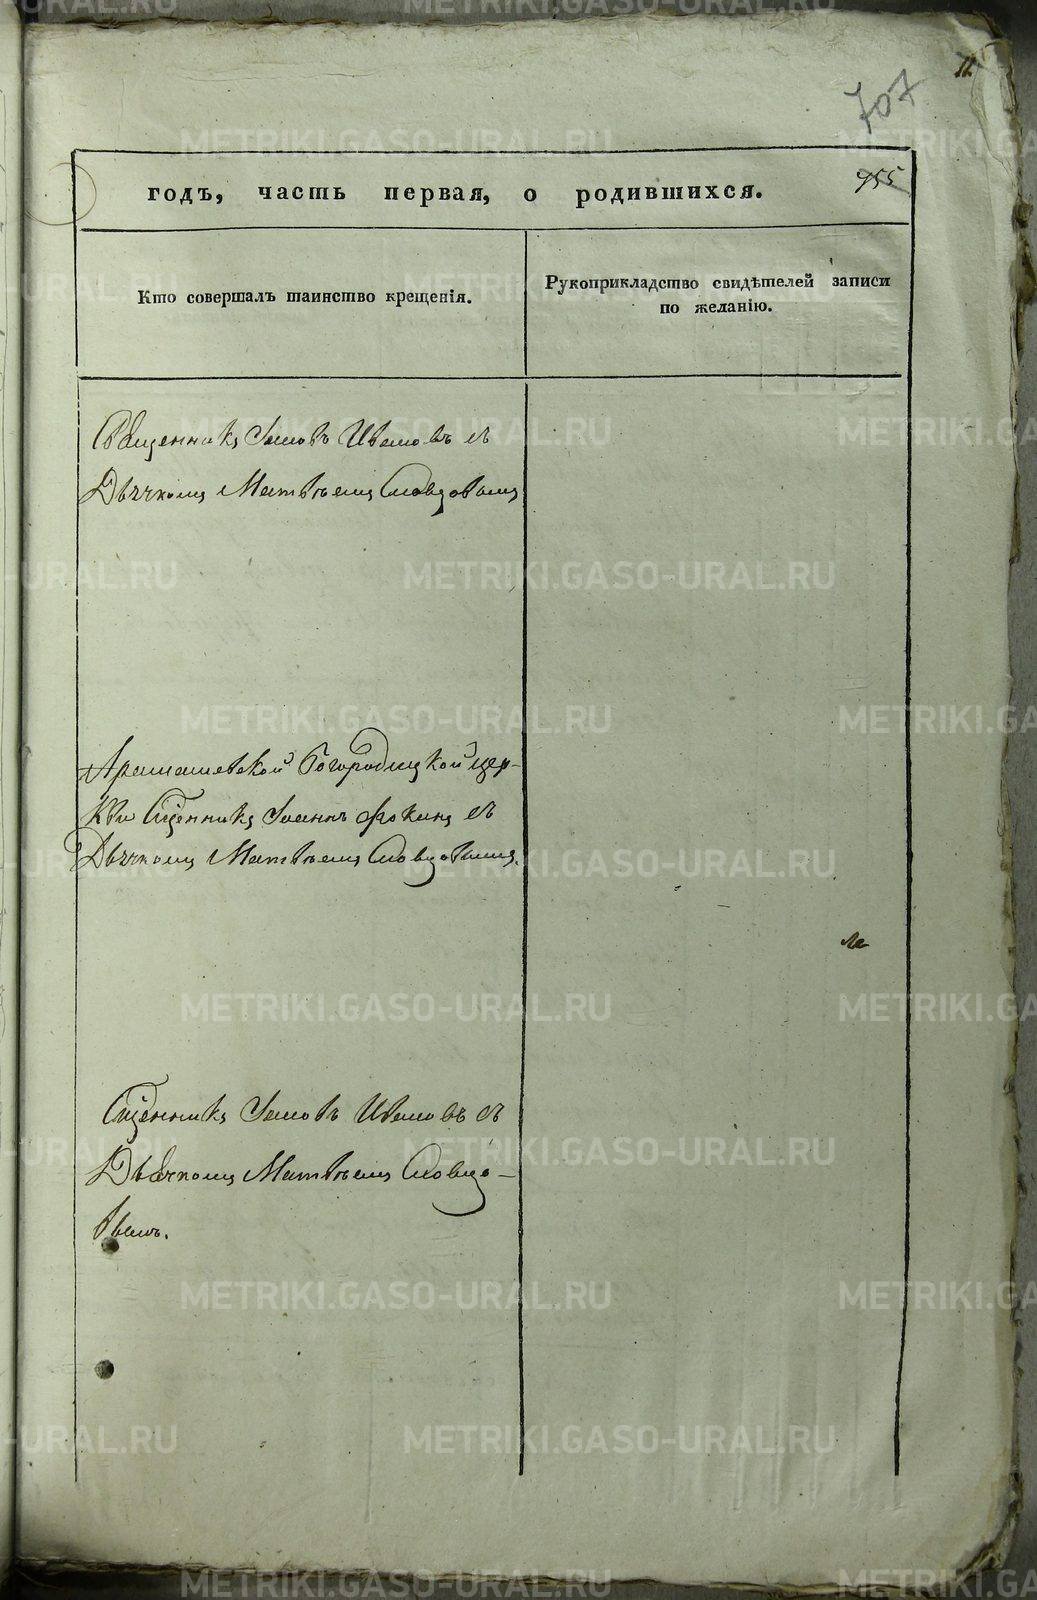 11
707
955
годъ, часть первая, о родившихся.
Кто совершалъ таинство крещенія.
Рукоприкладство свидѣтелей записи
по желанію.
Священникъ Іаковъ Ивановъ съ
Дьячкомъ Матвѣемъ Словцовымъ
Арамашевской Богородицкой цер-
кви Сщенникъ Іоаннъ Фокинъ съ
Дьячкомъ Матвѣемъ Словцовымъ.
Сщенникъ Іаковъ Ивановъ съ
Дьячкомъ Матвѣемъ Словцо-
вымъ.
METRIKI.GASO-URAL.RU